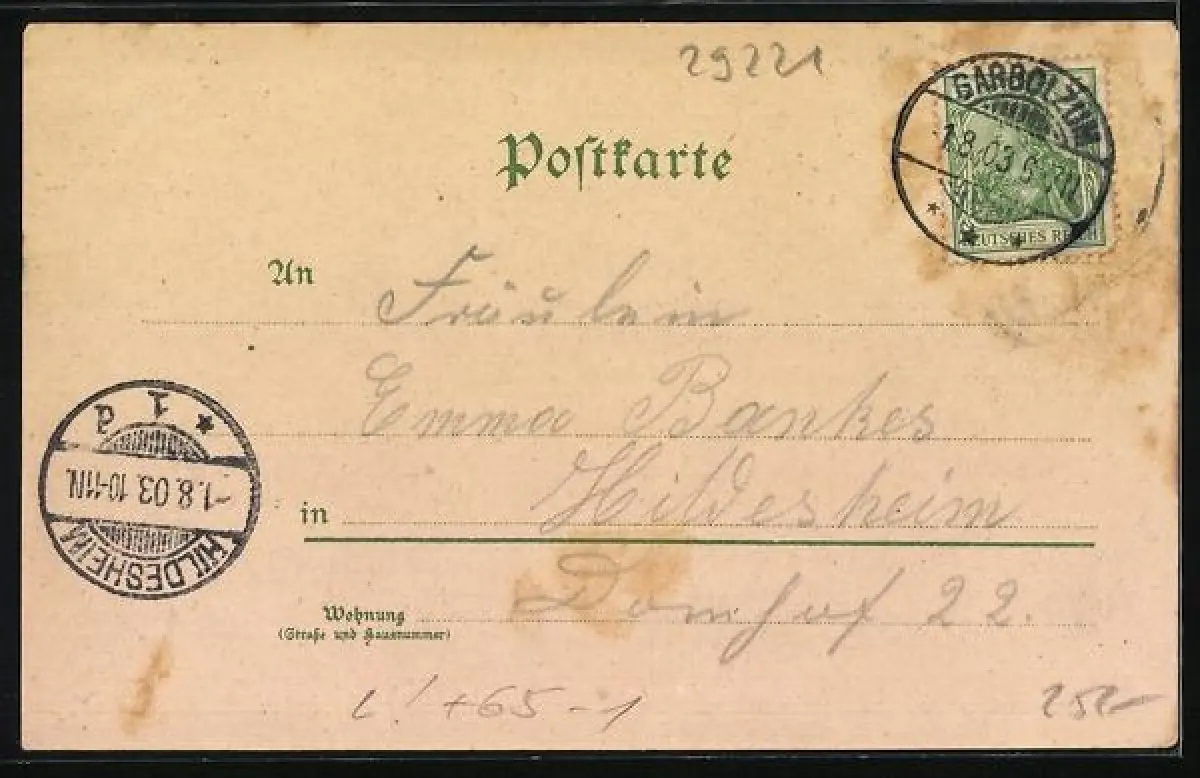 29221
GARBOLZUM
1.8.03.6-7N.
DEUTSCHES REICH
Postkarte
An Fräulein
Emma Bankes
in Hildesheim
Wohnung Domhof 22.
(Straße und Hausnummer)
HILDESHEIM
-1.8.03.10-11N.
* 1 d
L! +65-1
252-